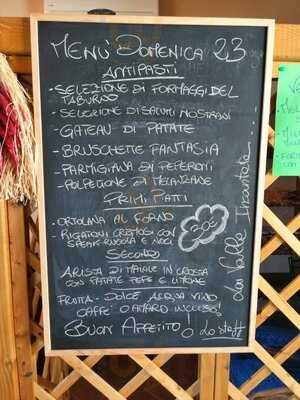 MENÙ DOMENICA 23
ANTIPASTI
- SELEZIONE DI FORMAGGI DEL
TABURNO
- SELEZIONE DI SALUMI NOSTRANI
- GATEAU DI PATATE
- BRUSCHETTE FANTASIA
- PARMIGIANA DI PEPERONI
- POLPETTONE DI MELANZANE
PRIMI PIATTI
- ORTOLANA AL FORNO
- RIGATONI CREMOSI CON
SPEAK RUCOLA E NOCI
SECONDO
ARISTA DI MAIALE IN CROSTA
CON PATATE PEPE E LIMONE
FRUTTA - DOLCE ACQUA VINO,
CAFFE' O AMARO INCLUSO!
BUON APPETITO! Lo staff
La Valle Incantata...